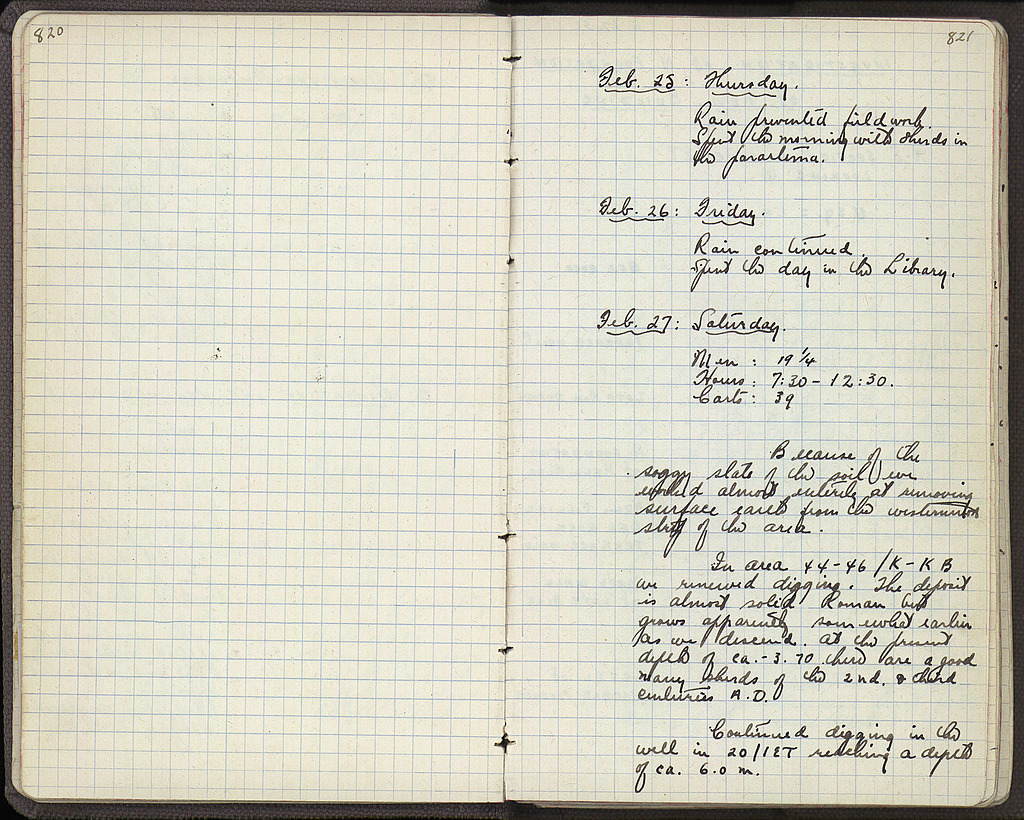 820
821
Feb. 25: Thursday.
Rain prevented field work.
Spent the morning with sherds in
the parartema.
Feb. 26: Friday.
Rain continued.
Spent the day in the Library.
Feb. 27: Saturday.
Men: 19 1/4
Hours: 7:30 - 12:30.
Carts: 39
Because of the
soggy state of the soil we
worked almost entirely at removing
surface earth from the westernmost
strip of the area.
In area 44-46/K-KB
we renewed digging. The deposit
is almost solid Roman but
grows apparently somewhat earlier
as we descend. At the present
depth of ca. -3.70 there are a good
many sherds of the 2nd. & third
centuries A.D.
Continued digging in the
well in 20/ reaching a depth
of ca. 6.0 m.